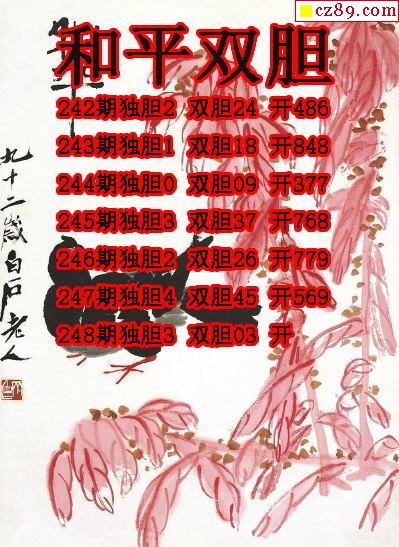 cz89.com
和平双胆
242期独胆2 双胆24 开486
243期独胆1 双胆18 开848
244期独胆0 双胆09 开377
245期独胆3 双胆37 开768
246期独胆2 双胆26 开779
247期独胆4 双胆45 开569
248期独胆3 双胆03 开
九十二岁白石老人